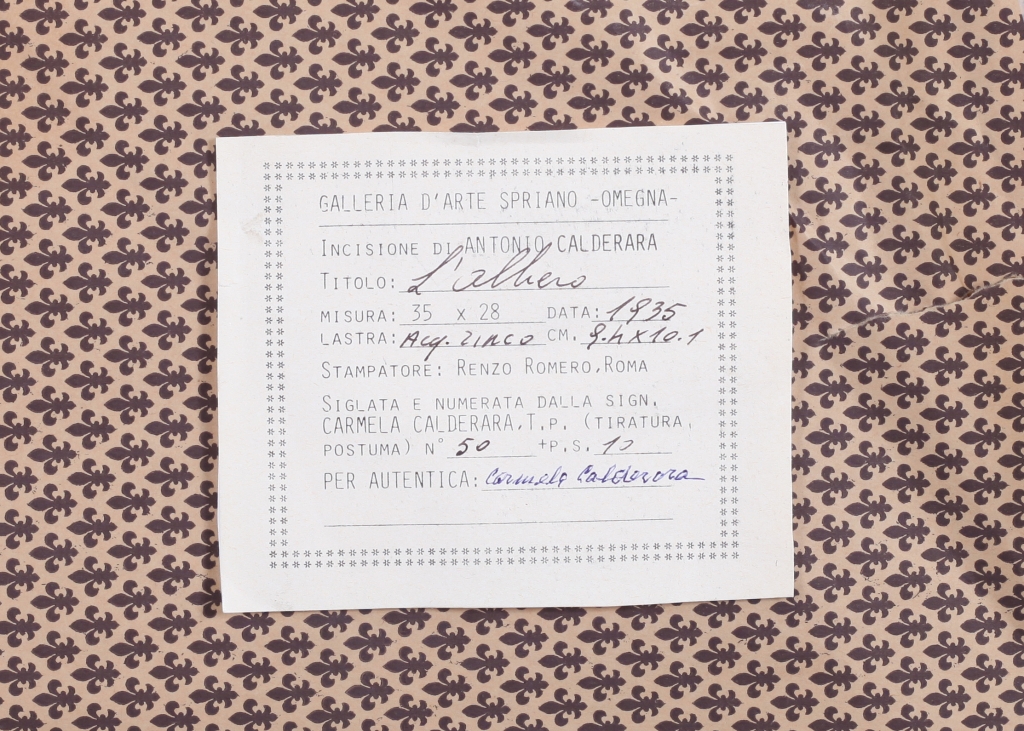 GALLERIA D'ARTE SPRIANO -OMEGNA-
INCISIONE DI ANTONIO CALDERARA
TITOLO: L'albero
MISURA: 35 x 28 DATA: 1935
LASTRA: Acq. zinco CM. 9.4x10.1
STAMPATORE: RENZO ROMERO, ROMA
SIGLATA E NUMERATA DALLA SIGN.
CARMELA CALDERARA, T.P. (TIRATURA,
POSTUMA) N° 50 +P.S. 10
PER AUTENTICA: Carmela Calderara